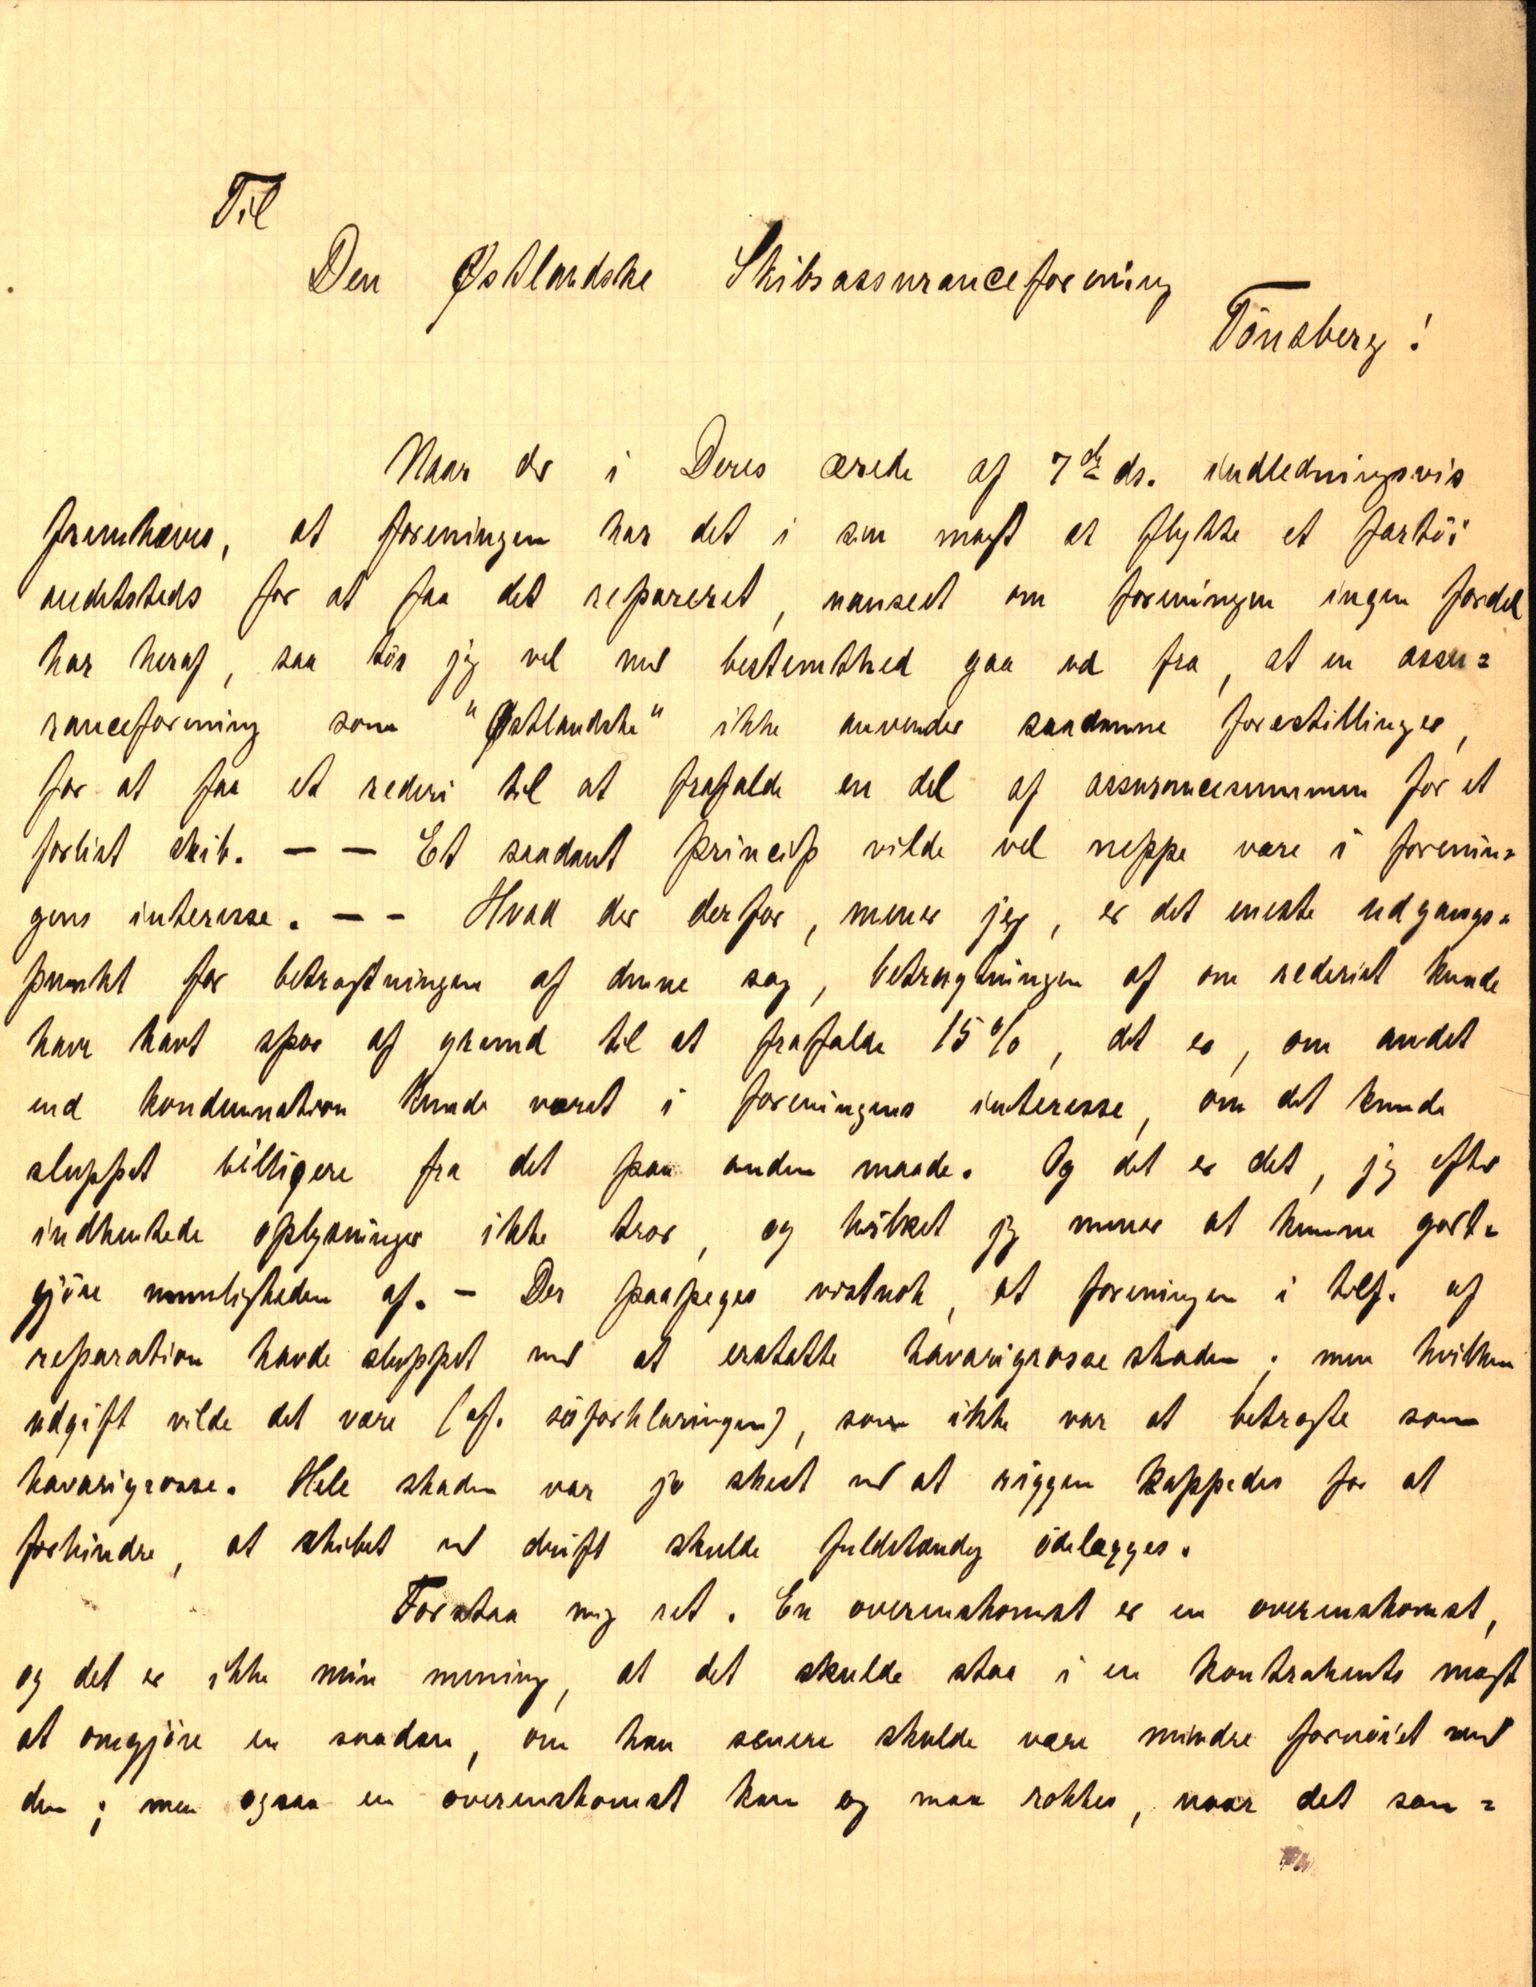 Til
Den Østlandske Skibsassuranceforening
Tönsberg!
Naar der i Deres ærede af 7de ds. indledningsvis
fremhæves, at foreningen har det i sin magt at flytte et fartöi
andetsteds for at faa det repareret, uanseet om foreningen ingen fordel
har heraf, saa tör jeg vel med bestemthed gaa ud fra, at en assu=
ranceforening som "Østlandske" ikke anvender saadanne forestillinger,
for at faa et rederi til at frafalde en del af assurancesummen for et
forlist skib. — — Et saadant princip vilde vel neppe være i forenin=
gens interesse. — – Hvad der derfor, mener jeg, er det eneste udgangs=
punkt for betragtningen af denne sag, betragtningen af om rederiet kunde
have havt spor af grund til at frafalde 15%, det er, om andet
end kondemnation kunde været i foreningens interesse, om det kunde
sluppet billigere fra det paa anden maade. Og det er det, jeg efter
indhentede oplysninger ikke tror, og hvilket jeg mener at kunne godt=
gjöre umuligheden af. – Der paapeges vistnok, at foreningen i tilf. af
reparation havde sluppet med at erstatte havarigrosseskaden; men hvilken
udgift vilde det være (cf. söforklaringen), som ikke var at betragte som
havarigrosse. Hele skaden var jo skeet ved at riggen kappedes for at
forhindre, at skibet ved drift skulde fuldstændig ödelægges.
Forstaa mig ret. En overenskomst er en overenskomst,
og det er ikke min mening, at det skulde staa i en kontrahents magt
at omgjöre en saadan, om han senere skulde være mindre fornöiet med
den; men ogsaa en overenskomst kan og maa rokkes, naar det saa=